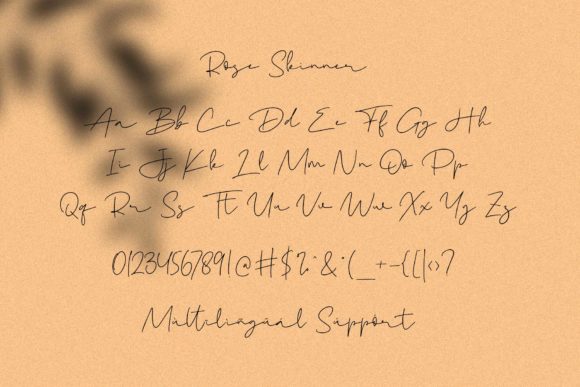 Rose Skinner
Aa Bb Cc Dd Ee Ff Gg Hh
Ii Jj Kk Ll Mm Nn Oo Pp
Qq Rr Ss Tt Uu Vv Ww Xx Yy Zz
0123456789!@#$%^&*(_+-{[|<>?
Multilingual Support